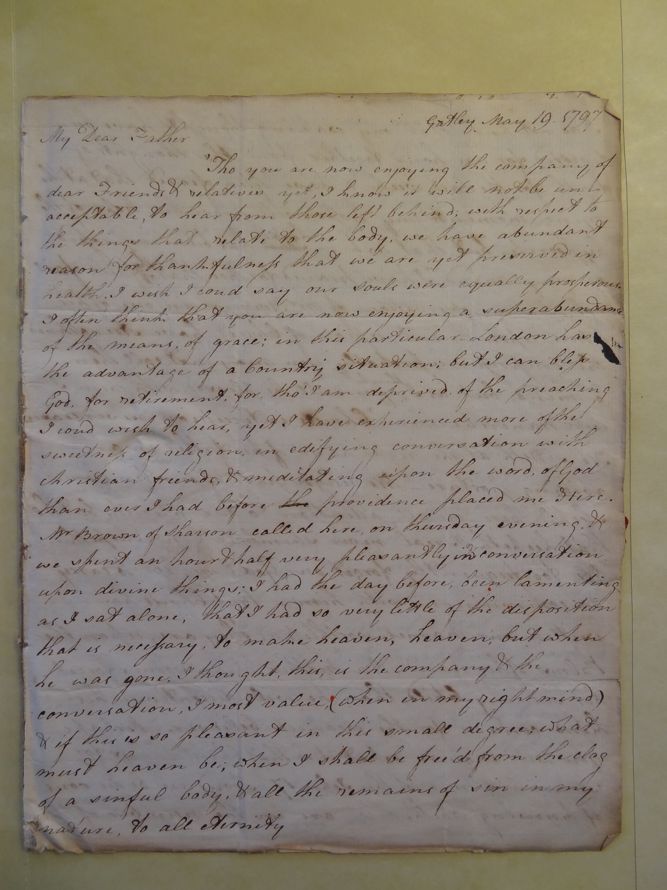 Gatley May 19 1797
My Dear Father
'Tho you are now enjoying the company of
dear Friends & relatives yet, I know it will not be un-
acceptable, to hear from those left behind; with respect to
the things that relate to the body, we have abundant
reason for thankfulness that we are yet preserved in
health, I wish I coud say our souls were equally prosperous.
I often think that you are now enjoying a superabundance
of the means, of grace; in this particular London has
the advantage of a Country situation; but I can bless
God. for retirement. for tho' I am deprived of the preaching
I coud wish to hear, yet I have experienced more of the
sweetness of religion, in edifying conversation with
christian friends, & meditating upon the word, of God
than ever I had before the providence placed me Here.
Mr Brown of Sharson called here on thursday evening, &
we spent an hour & half very pleasantly in conversation
upon divine things; I had the day before, been lamenting
as I sat alone, that I had so very little of the disposition
that is necessary, to make heaven, heaven; but when
he was gone. I thought, this, is the company & the
conversation, I most value, (when in my right mind)
& if this is so pleasant in this small degree; what
must heaven be; when I shall be free'd from the clog
of a sinful body, & all the remains of sin in my
nature, to all eternity